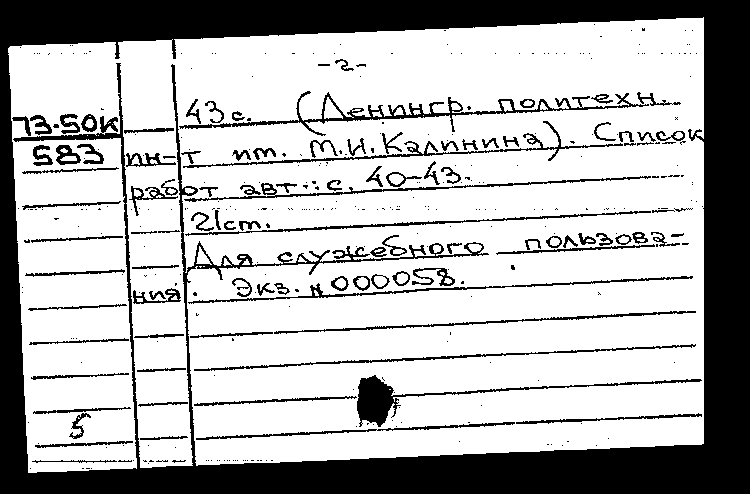 -2-
43 с. (Ленингр. политехн.
73.50К
583 ин-т им. М.И. Калинина). Список
работ авт.: с. 40-43.
21 ст.
Для служебного пользова-
ния. Экз. № 000058.
5